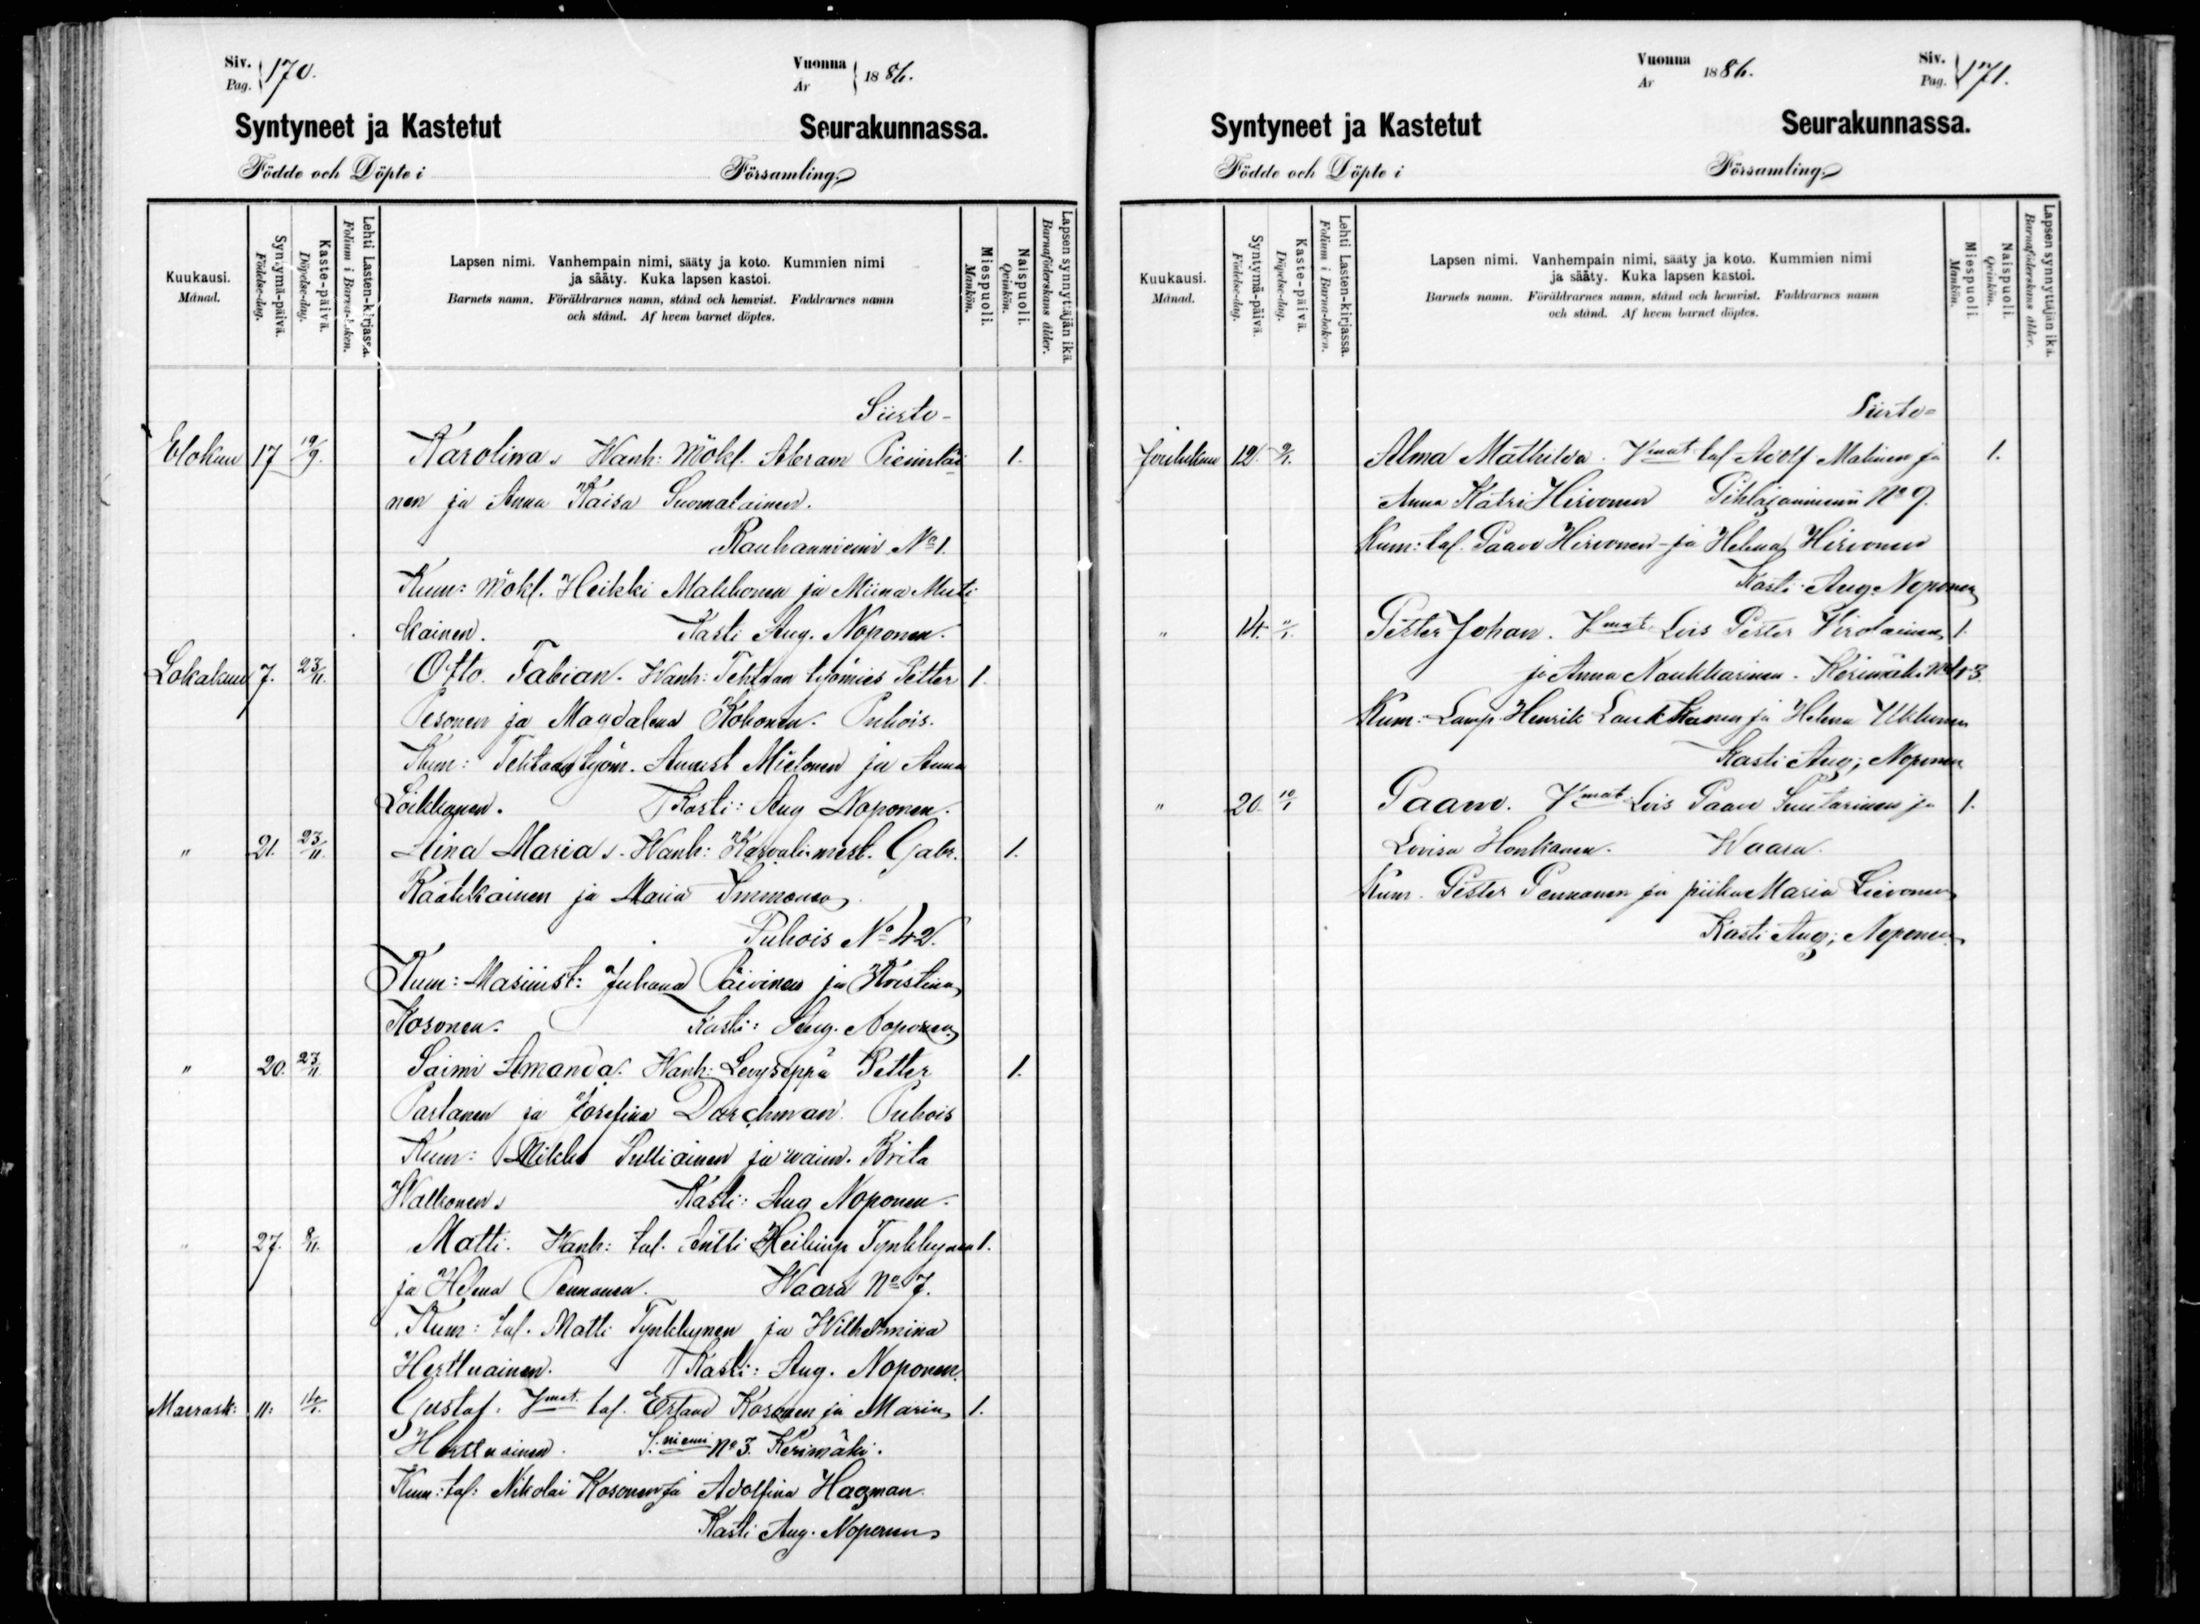 Siv.
Pag. 170.
Vuonna
År 1886.
Syntyneet ja Kastetut Seurakunnassa.
Födde och Döpte i Församling.
Kuukausi.
Månad.
Syntymä-päivä.
Födelse-dag.
Kaste-päivä.
Döpelse-dag.
Lehti Lasten-kirjassa.
Folium i Barna-boken.
Lapsen nimi. Vanhempain nimi, sääty ja koto. Kummien nimi
ja sääty. Kuka lapsen kastoi.
Barnets namn. Föräldrarnes namn, stånd och hemvist. Faddrarnes namn
och stånd. Af hvem barnet döptes.
Miespuoli.
Mankön.
Naispuoli.
Qvinkön.
Lapsen synnyttäjän ikä.
Barnaföderskans ålder.
Siirto-
Elokuu 17 19/9. Karolina. Wanh: Mökl. Abram Pienintäi 1.
nen ja Anna Kaisa Suomalainen.
Rauhanniemi No 1.
Kum: Mökl. Heikki Makkonen ja Miina Muti
kainen. Kasti Aug. Noponen.
Lokakuu 7. 23/11. Otto Fabian. Wanh: Tehtaan työmies Petter 1.
Pesonen ja Magdalena Kokonen. Puhois.
Kum: Tehtaan työm. August Mielonen ja Anna
Löikkanen. Kasti: Aug Noponen.
" 21. 23/11. Aina Maria. Wanh: Gabr. 1.
Räätikäinen ja Maria Immonen
Puhois No 42.
Kum: Masinist: Juhana Päivinen ja Kristina
Kosonen. Kasti: Aug. Noponen
" 20. 23/11. Saimi Amanda. Wanh: Levyseppä Petter 1.
Partanen ja Josefina Darchman. Puhois
Kum: Mikko Pulliainen ja waim. Brita
Walkonen. Kasti: Aug Noponen.
" 27. 8/11. Matti. Wanh: tal. Antti Heikinp Tynkkynen 1.
ja Helena Pennanen. Waara No 7.
Kum: tal. Matti Tynkkynen ja Wilhelmina
Herttuainen. Kasti: Aug. Noponen.
Marrask: 11: 14/1. Gustaf. Vmat. tal. Erland Kosonen ja Maria 1.
Herttuainen. S. niemi No 3. Kerimäki.
Kum: tal: Nikolai Kosonen ja Adolfina Hagman.
Kasti Aug. Noponen
Vuonna
Ar 1886.
Siv.
Pag. 171.
Syntyneet ja Kastetut Seurakunnassa.
Födde och Döpte i Församling.
Kuukausi.
Månad.
Syntymä-päivä.
Födelse-dag.
Kaste-päivä.
Döpelse-dag.
Lehti Lasten-kirjassa.
Folium i Barna-boken.
Lapsen nimi. Vanhempain nimi, sääty ja koto. Kummien nimi
ja sääty. Kuka lapsen kastoi.
Barnets namn. Föräldrarnes namn, stånd och hemvist. Faddrarnes namn
och stånd. Af hvem barnet döptes.
Miespuoli.
Mankön.
Naispuoli.
Qvinkön.
Lapsen synnyttäjän ikä.
Barnaföderskans ålder.
Siirto-
Joulukuu 12. 9/1. Alma Mathilda. Vmat. tal Adolf Malinen ja 1.
Anna Katri Hirvonen Pihlajaniemi No 9.
Kum: tal. Paavo Hirvonen ja Helena Hirvonen
Kasti Aug. Noponen
" 14. 11/1. Petter Johan. Vmat. Lois Petter Virolainen 1.
ja Anna Naukkarinen. Kerimäki No 13.
Kum: Lamp. Henrik Laukkanen ja Helena
Kasti Aug; Noponen
" 20. 10/1 Paavo. Vmat. Lois Paavo Suutarinen ja 1.
Lovisa Honkanen. Waara.
Kum. Petter Pennanen ja piika Maria Lievonen
Kasti Aug; Noponen